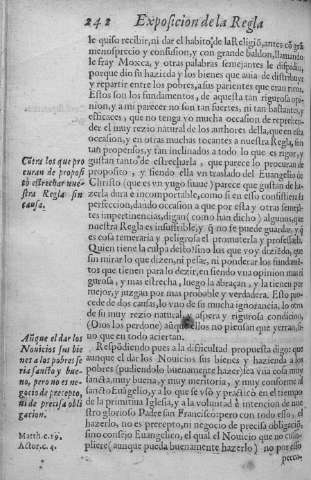 242 Exposicion de la Regla
le quiso recibir, ni dar el habito de la Religiõ, antes cõ grã
menosprecio y confusion, y con grande baldon, llamando
le fray Moxca, y otras palabras semejantes le dispidio,
porque dio su hazienda y los bienes que auia de distribuyr
y repartir entre los pobres, a sus parientes que eran ricos.
Estos son los fundamentos, de aquesta tan rigurosa opi-
nion, y a mi parecer no son tan fuertes, ni tan bastante, y
efficaces, que no tenga yo mucha occasion de reprehen-
der el muy rezio natural de los authores della, que en esta
occasion, y en otras muchas tocantes a nuestra Regla, sin
tan propensos, y tan inclinados a todo lo que es rigor, y
gustan tanto de estrecharla, que parece lo procuran de
proposito, y siendo ella vn traslado del Euangelio de
Christo (que es vn yugo suaue) parece que gustan de ha-
zerla dura e incomportable, como si en esso consistiera su
perfection, dando occasion a que por esta y otras semejan-
tes impertinencias, digan (como han dicho) algunos, que
nuestra Regla es insuffrible, y q̃ no se puede guardar, y q̃
es cosa temeraria y peligrosa el prometerla y professarla.
Quien tiene la culpa desto? sino los que vo y diziẽdo, que
sin mirar lo que dizen, ni pesar, ni ponderar los fundamẽ-
tos que tienen para lo dezir, en siendo vna opinion mas ri
gurosa, y mas estrecha, luego la abraçan, y la tienen por
mejor, y juzgan por mas probable y verdadera. Esto pro-
cede de dos causas, lo vno de su mucha ignorancia, lo otro
de su muy rezio natural, aspera y rigurosa condicion,
(Dios las perdone) aũque ellos no piensan que yerran, si-
no que en todo aciertan.
Respõdiendo pues a la difficultad propuesta digo: que
aunque el dar los Nouicios sus bienes y hazienda a los
pobres (pudiendolo buenamente hazer) sea vna cosa muy
sancta, muy buena, y muy meritoria, y muy conforme al
sancto Euãgelio, y a lo que se vsò y practicò en el tiempo
de la primitiua Iglesia, y a la voluntad è intencion de nue
stro glorioso Padre san Francisco: pero con todo esso, el
hazerlo, no es precepto, ni negocio de precisa obligaciõ,
sino consejo Euangelico, el qual el Nouicio que no cum-
pliere (aunque pueda buenamente hazerlo) no por esso
pecca,
Cõtra los que pro
curan de proposi
to estrechar nue-
stra Regla sin
causa.
Aũque el dar los
Nouicios sus bie
nes a los pobres se
ria sancto y bue-
no, pero no es ne-
gocio de precepto,
ni de precisa obli
gacion.
Matth. c. 19.
Actor. c. 4.